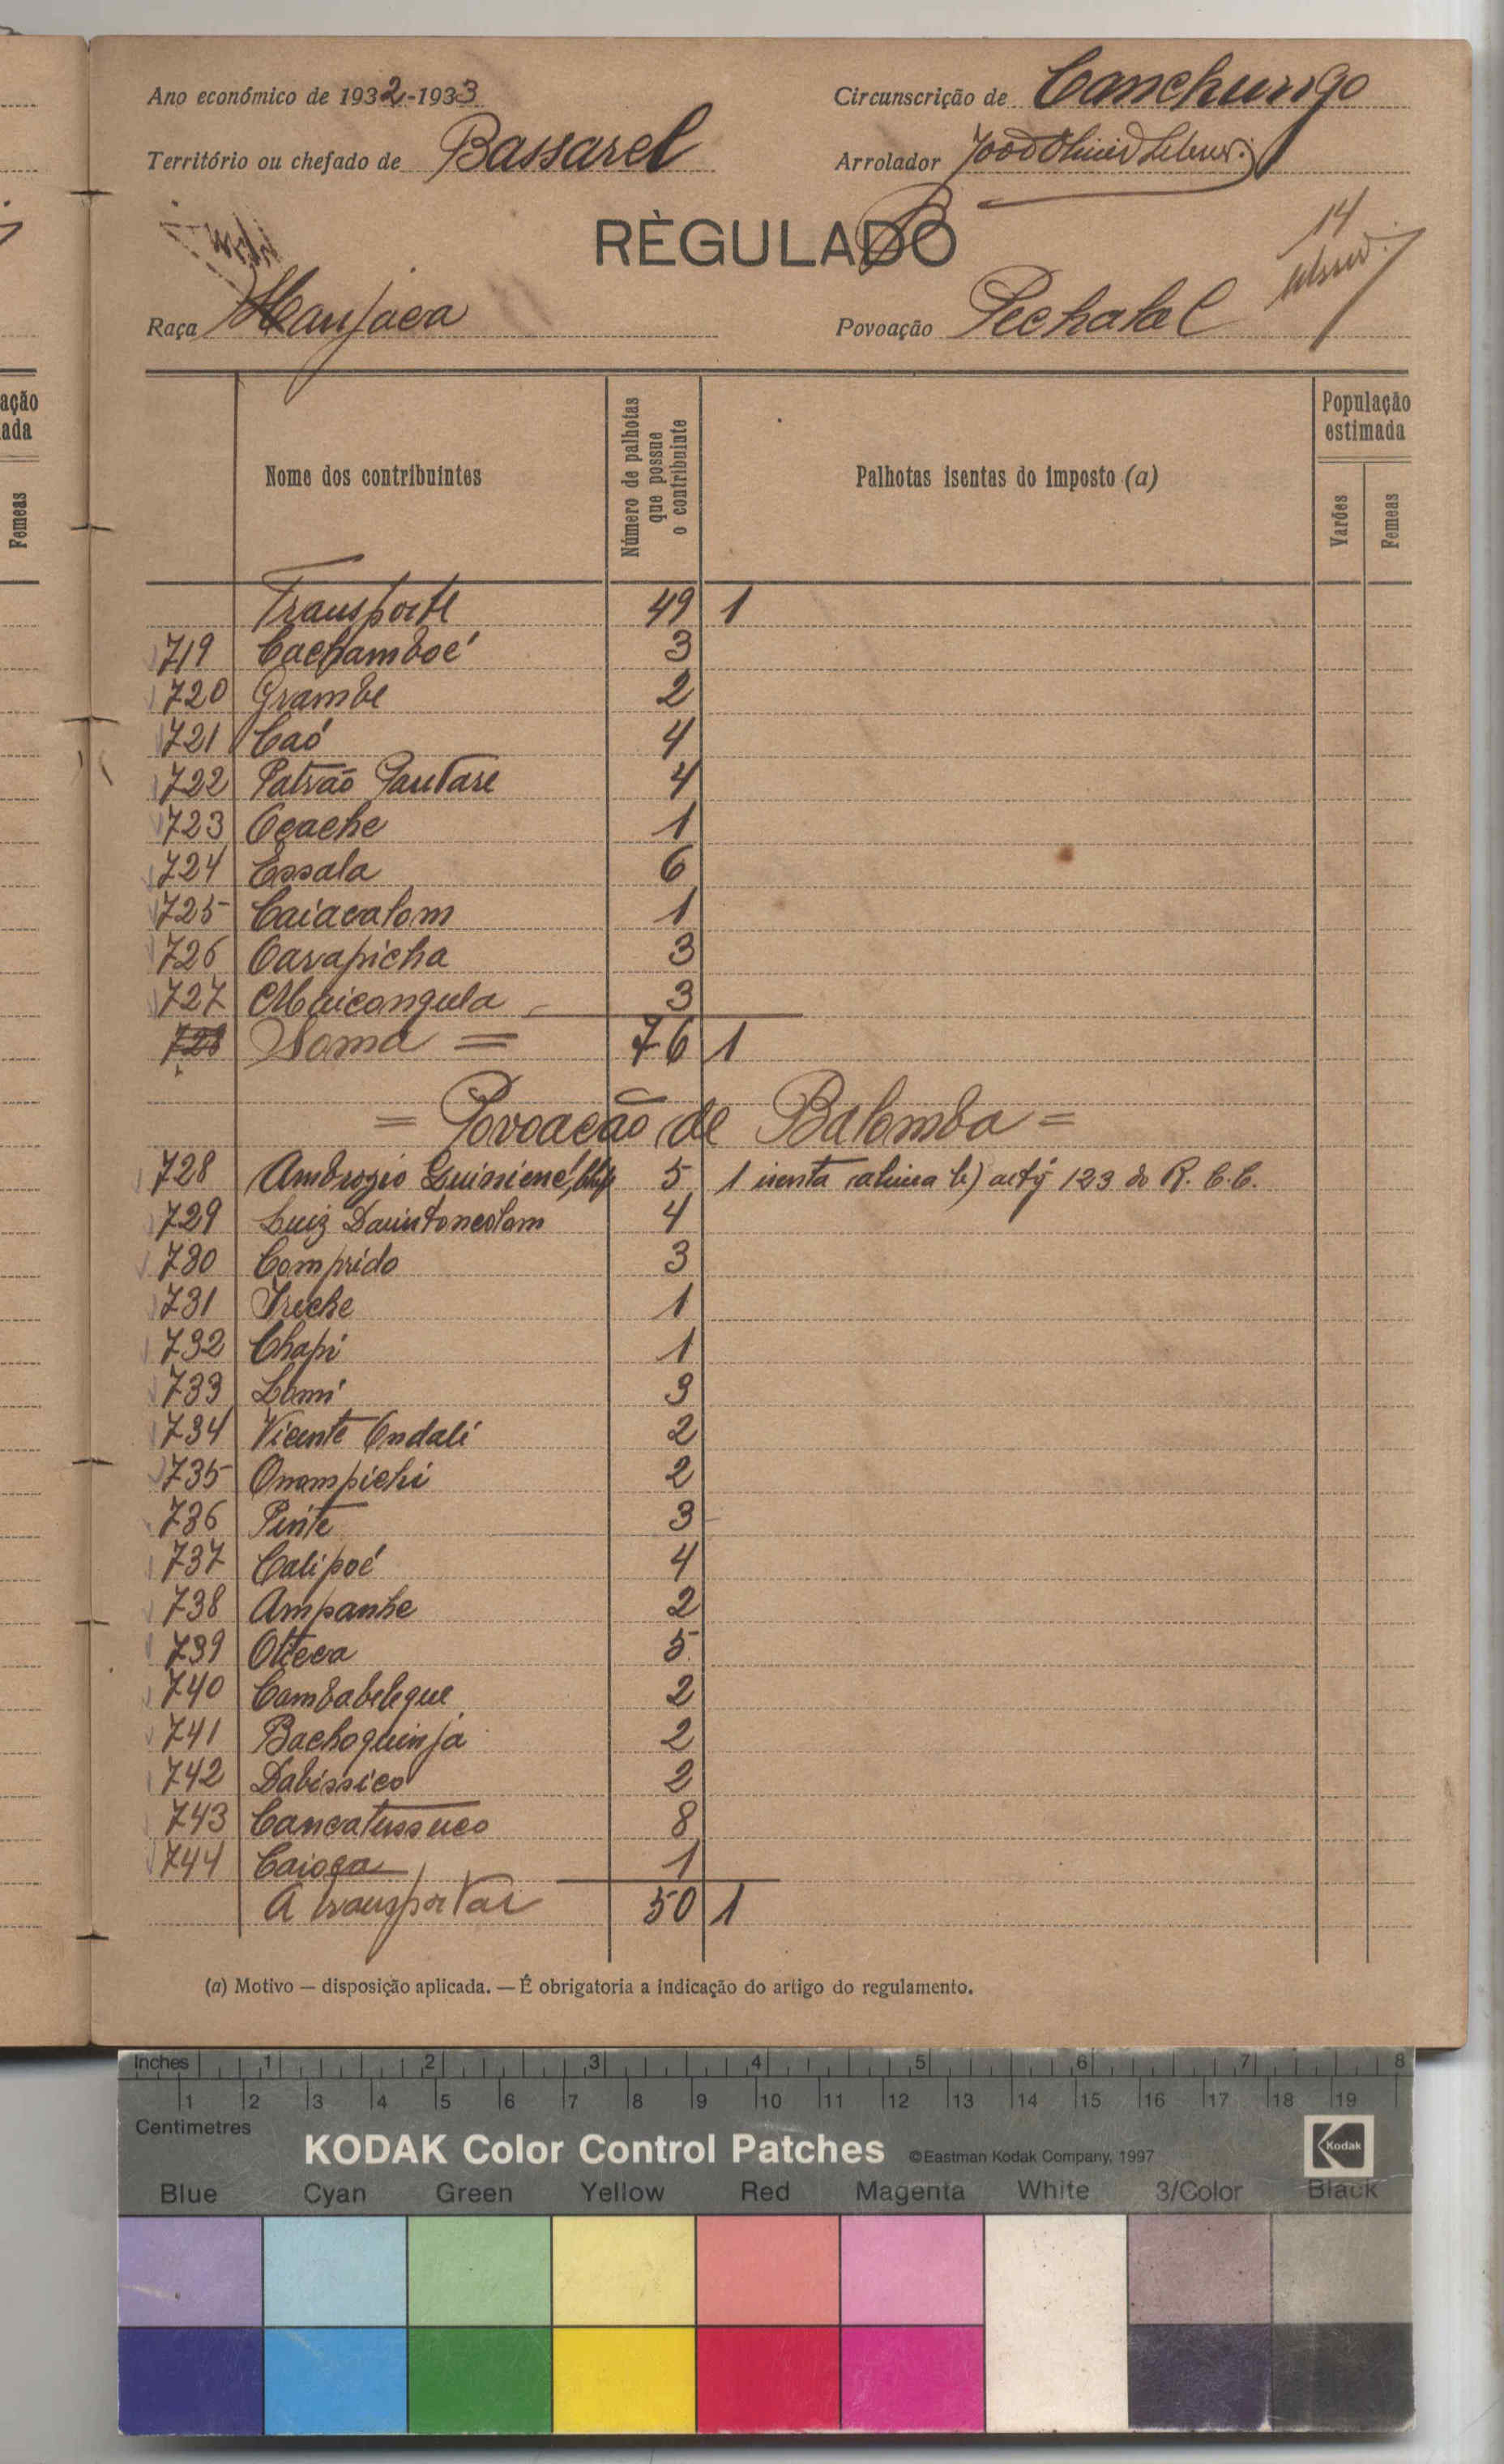 Ano económico de 1932-1933
Circunscrição de Canchungo
Território ou chefado de Bassarel
Arrolador
RÈGULADO
14
Raça Manjaca
Povoação Pechalal
ação
ada
Femeas
Nome dos contribuintes
Número de palhotas que possue o contribuinte
Palhotas isentas do imposto (a)
População estimada
Varões
Femeas
Transporte 49 1
719 Cachamboé 3
720 Grambe 2
721 Caó 4
722 Patrão 4
723 Ocache 1
724 Essala 6
725 Caiacalom 1
726 Carapicha 3
727 Maicongula 3
728 Soma = 76 1
= Povoação de Balomba =
728 Ambrozio 5 1 isenta alinea b) artº 123 do R. C. C.
729 Luiz 4
730 Comprido 3
731 Treche 1
732 Chapi 1
733 Lomi 3
734 Vicente Ondali 2
735 Onompichi 2
736 Pinte 3
737 Calipoé 4
738 Ampanhe 2
739 Otteca 5
740 Cambabelegue 2
741 Bachoquinja 2
742 Dabissico 2
743 Cancatussuco 8
744 Caioca 1
A transportar 50 1
(a) Motivo — disposição aplicada. — É obrigatoria a indicação do artigo do regulamento.
Inches 1 2 3 4 5 6 7 8
1 2 3 4 5 6 7 8 9 10 11 12 13 14 15 16 17 18 19
Centimetres
KODAK Color Control Patches ©Eastman Kodak Company, 1997 Kodak
Blue Cyan Green Yellow Red Magenta White 3/Color Black